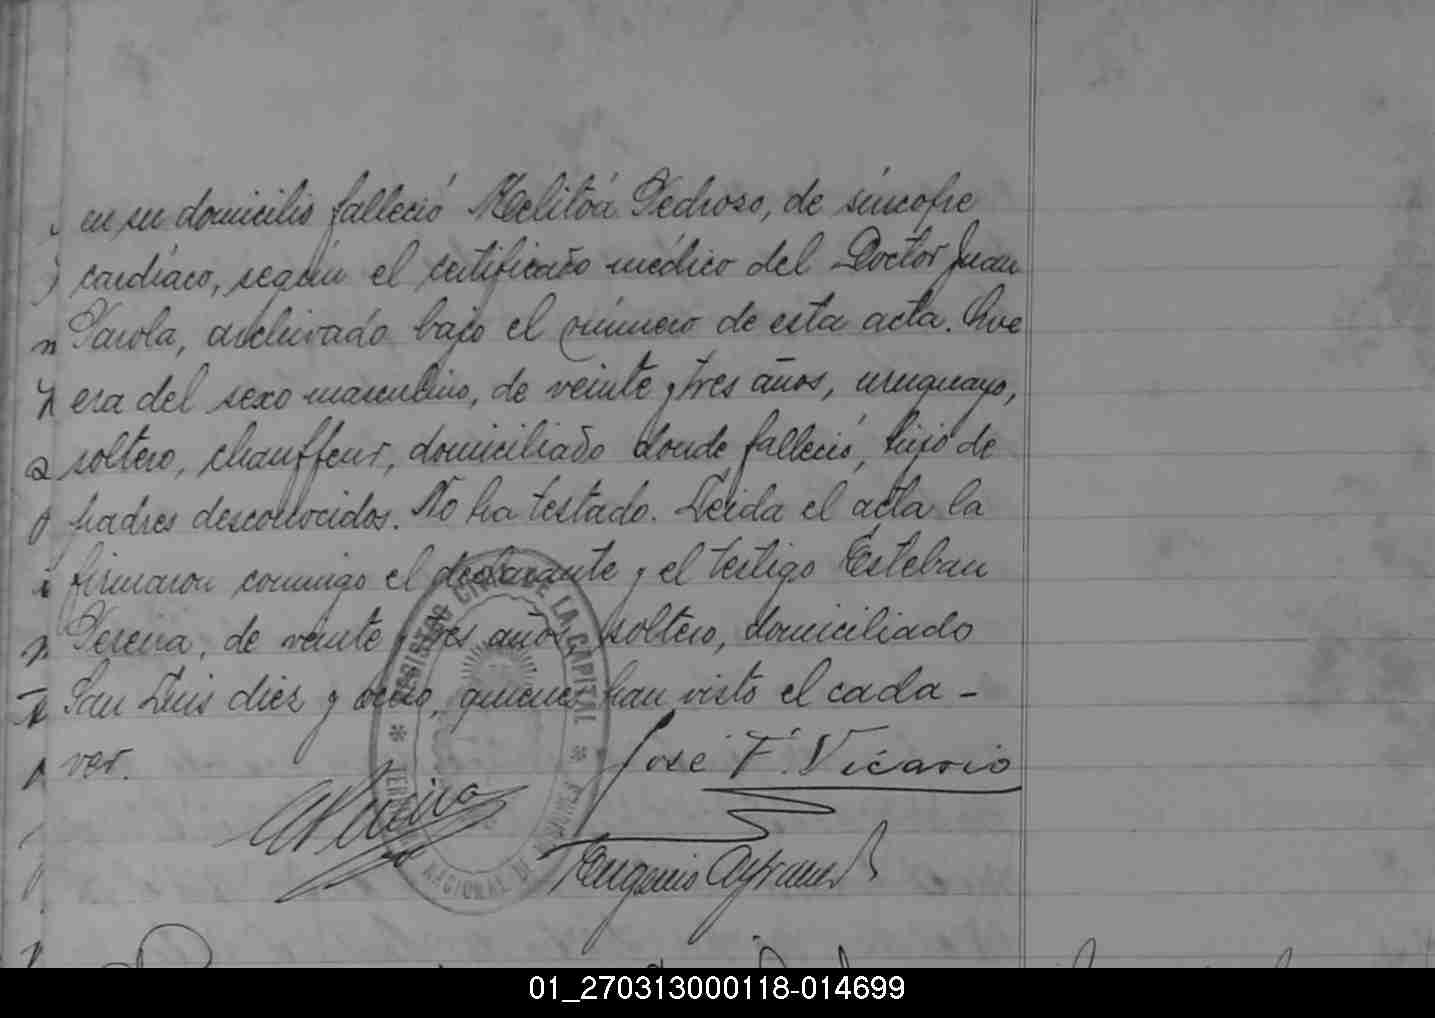 en su domicilio falleció Melitóa Pedroso, de síncope
cardíaco, según el certificado médico del Doctor Juan
Parola, archivado bajo el número de esta acta. Que
era del sexo masculino, de veinte y tres años, uruguayo,
soltero, chauffeur, domiciliado donde falleció, hijo de
padres desconocidos. No ha testado. Leida el acta la
firmaron conmigo el declarante y el testigo Esteban
Pereira, de veinte y tres años, soltero, domiciliado
San Luis diez y ocho, quienes han visto el cada-
ver.
José F. Vicario
Eugenio
REGISTRO CIVIL DE LA CAPITAL
NACIONAL DE
01_270313000118-014699